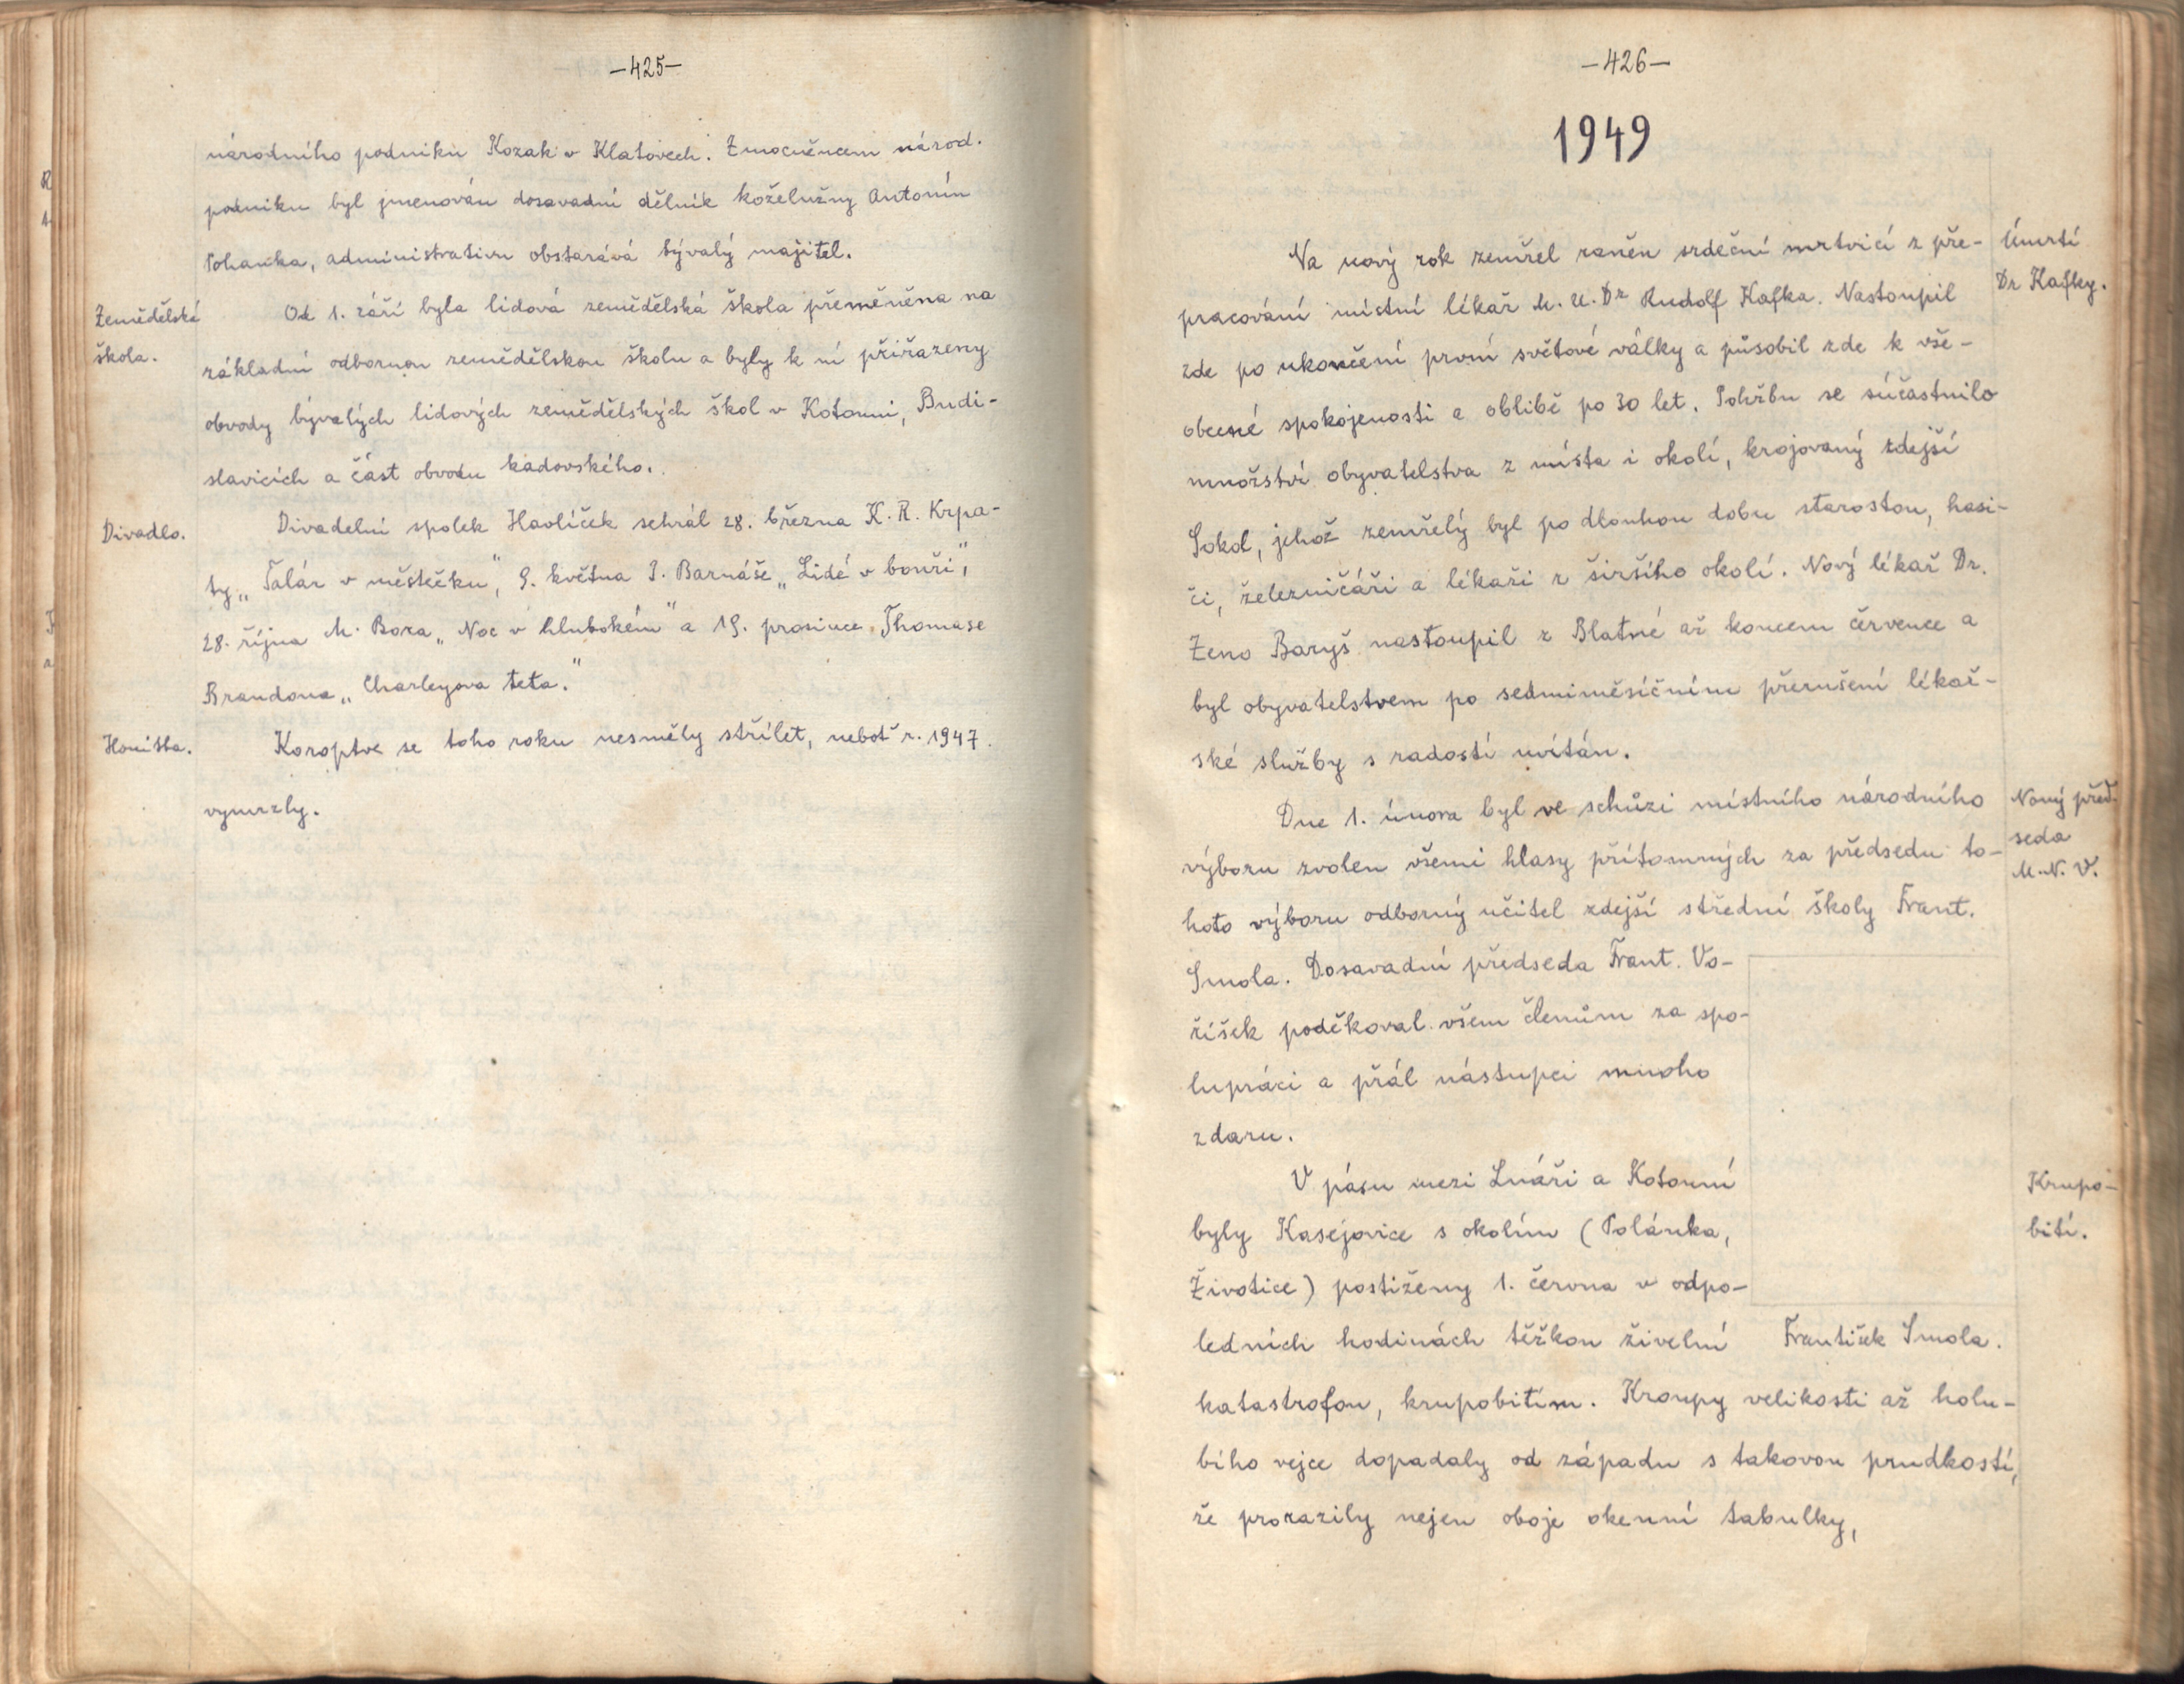 -425-
národního podniku Kozak v Klatovech. Zmocněncem národ.
podniku byl jmenován dosavadní dělník koželužny Antonín
Pohanka, administrativu obstarává bývalý majitel.
Zemědělská
škola.
Od 1. září byla lidová zemědělská škola přeměněna na
základní odbornou zemědělskou školu a byly k ní přiřazeny
obvody bývalých lidových zemědělských škol v Kotouni, Budi-
slavicích a část obvodu kadovského.
Divadlo.
Divadelní spolek Havlíček sehrál 28. března K. R. Krpa-
ty „Talár v městečku", 9. května I. Barnáše „Lidé v bouři",
28. října M. Bora „Noc v hlubokém" a 19. prosince Thomase
Brandona „Charleyova teta."
Honitba.
Koroptve se toho roku nesměly střílet, neboť r. 1947
vymrzly.
-426-
1949
Úmrtí
Dr Kafky.
Na nový rok zemřel raněn srdeční mrtvicí z pře-
pracování místní lékař M. U. Dr Rudolf Kafka. Nastoupil
zde po ukončení první světové války a působil zde k vše-
obecné spokojenosti a oblibě po 30 let. Pohřbu se súčastnilo
množství obyvatelstva z místa i okolí, krojovaný zdejší
Sokol, jehož zemřelý byl po dlouhou dobu starostou, hasi-
či, železničáři a lékaři z širšího okolí. Nový lékař Dr.
Zeno Baryš nastoupil z Blatné až koncem července a
byl obyvatelstvem po sedmiměsíčním přerušení lékař-
ské služby s radostí uvítán.
Nový před-
seda
M. N. V.
Dne 1. února byl ve schůzi místního národního
výboru zvolen všemi hlasy přítomných za předsedu to-
hoto výboru odborný učitel zdejší střední školy Frant.
Smola. Dosavadní předseda Frant. Vo-
říšek poděkoval všem členům za spo-
lupráci a přál nástupci mnoho
zdaru.
Krupo-
bití.
V pásu mezi Lnáři a Kotouní
byly Kasejovice s okolím (Polánka,
Životice) postiženy 1. června v odpo-
ledních hodinách těžkou živelní
František Smola.
katastrofou, krupobitím. Kroupy velikosti až holu-
bího vejce dopadaly od západu s takovou prudkostí,
že prorazily nejen oboje okenní tabulky,